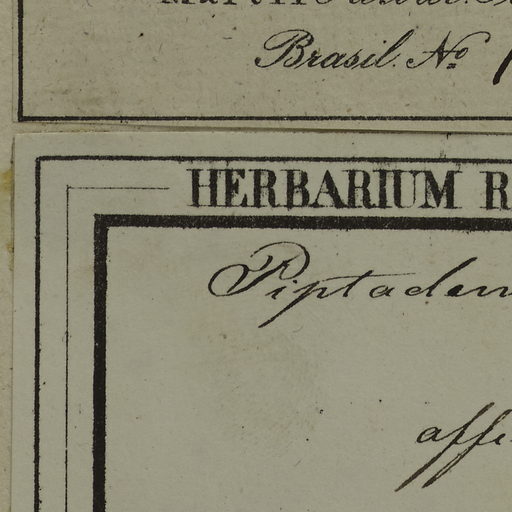 Brasil. Nº
HERBARIUM R
Piptaden
affi